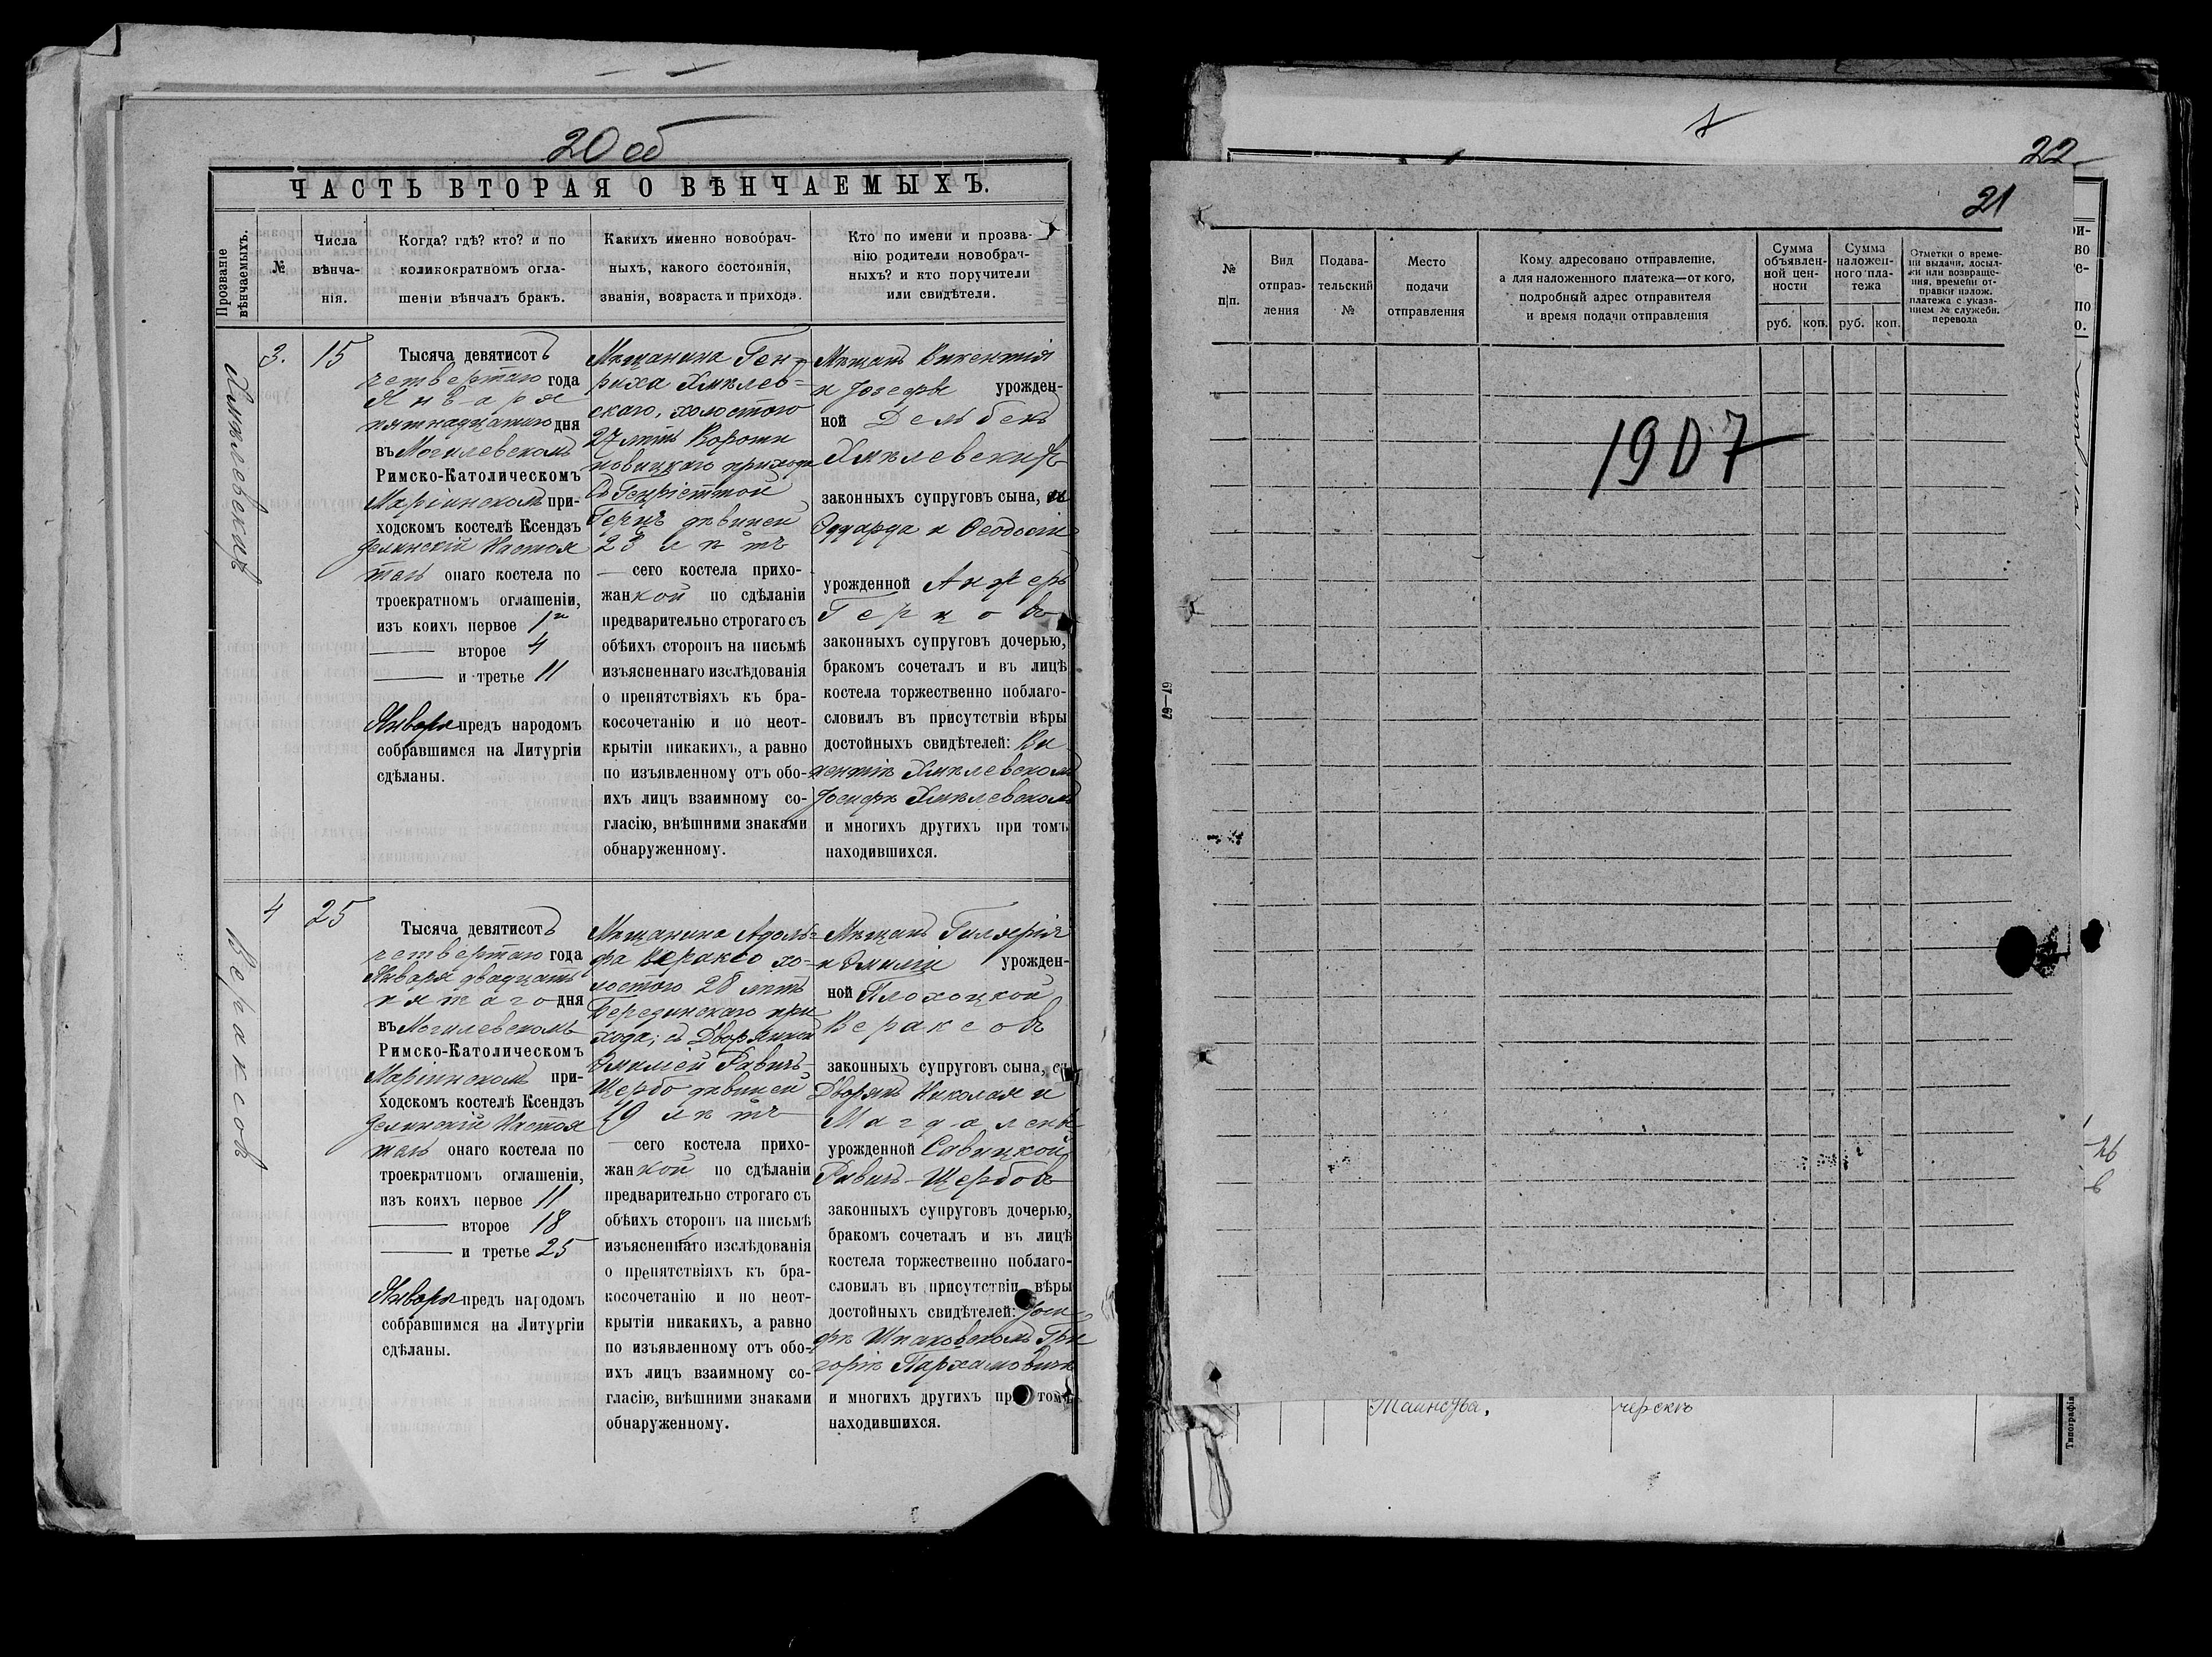 20 об
ЧАСТЬ ВТОРАЯ О ВѢНЧАЕМЫХЪ.
Прозваніе
вѣнчаемыхъ.
№
Числа
вѣнча-
нія.
Когда? гдѣ? кто? и по
коликократномъ огла-
шеніи вѣнчалъ бракъ.
Какихъ именно новобрач-
ныхъ, какого состоянія,
званія, возраста и прихода.
Кто по имени и прозва-
нію родители новобрач-
ныхъ? и кто поручители
или свидѣтели.
Хмѣлевскихъ
3.
15
Тысяча девятисотъ
четвертаго года
Января
пятнадцатаго дня
въ Могилевскомъ
Римско-Католическомъ
Маріинскомъ при-
ходскомъ костелѣ Ксендзъ
Зелинскій Настоя
тель онаго костела по
троекратномъ оглашеніи,
изъ коихъ первое 1го
второе 4
и третье 11
Января предъ народомъ
собравшимся на Литургіи
сдѣланы.
Мѣщанина Ген-
риха Хмѣлев-
скаго, холостого
27 лѣтъ
прихода
съ Генріеттой
Герцъ дѣвицей
23 лѣтъ
сего костела прихо-
жанкой по сдѣланіи
предварительно строгаго съ
обѣихъ сторонъ на письмѣ
изъясненнаго изслѣдованія
о препятствіяхъ къ бра-
косочетанію и по неот-
крытіи никакихъ, а равно
по изъявленному отъ обо-
ихъ лицъ взаимному со-
гласію, внѣшними знаками
обнаруженному.
Мѣщанъ Викентія
и Іозефы урожден-
ной Дельбекъ
Хмѣлевскихъ
законныхъ супруговъ сына, съ
Эдуарда и Ѳеодосіи
урожденной Анжеръ
Герцовъ
законныхъ супруговъ дочерью,
бракомъ сочеталъ и въ лицѣ
костела торжественно поблаго-
словилъ въ присутствіи вѣры
достойныхъ свидѣтелей: Ви
кентіѣ Хмѣлевскомъ
Іосифѣ Хмѣлевскомъ
и многихъ другихъ при томъ
находившихся.
Вераксовъ
4
25
Тысяча девятисотъ
четвертаго года
Января двадцать
пятаго дня
въ Могилевскомъ
Римско-Католическомъ
Маріинскомъ при-
ходскомъ костелѣ Ксендзъ
Зелинскій Настоя
тель онаго костела по
троекратномъ оглашеніи,
изъ коихъ первое 11
второе 18
и третье 25
Января предъ народомъ
собравшимся на Литургіи
сдѣланы.
Мѣщанина Адоль-
фа Вераксо хо-
лостого 28 лѣтъ
Березинскаго при
хода; съ Дворянкой
Эмиліей Равичъ-
Щербо дѣвицей
19 лѣтъ
сего костела прихо-
жанкой по сдѣланіи
предварительно строгаго съ
обѣихъ сторонъ на письмѣ
изъясненнаго изслѣдованія
о препятствіяхъ къ бра-
косочетанію и по неот-
крытіи никакихъ, а равно
по изъявленному отъ обо-
ихъ лицъ взаимному со-
гласію, внѣшними знаками
обнаруженному.
Мѣщанъ Гилярія
и Эмиліи урожден-
ной Плохоцкой
Вераксовъ
законныхъ супруговъ сына, съ
Дворянъ Николая и
Магдалены
урожденной Савицкой
Равичъ-Щербовъ
законныхъ супруговъ дочерью,
бракомъ сочеталъ и въ лицѣ
костела торжественно поблаго-
словилъ въ присутствіи вѣры
достойныхъ свидѣтелей: Іоси
фѣ Шпаковскомъ Гри
горіѣ Пархамовичѣ
и многихъ другихъ при томъ
находившихся.
22
21
№
п/п.
Вид
отправ-
ления
Подава-
тельский
№
Место
подачи
отправления
Кому адресовано отправление,
а для наложенного платежа—от кого,
подробный адрес отправителя
и время подачи отправления
Сумма
объявлен-
ной цен-
ности
руб. коп.
Сумма
наложен-
ного пла-
тежа
руб. коп.
Отметки о време-
ни выдачи, досыл-
ки или возвраще-
ния, времени от-
правки налож.
платежа с указа-
нием № служебн.
перевода
1907
Типографія